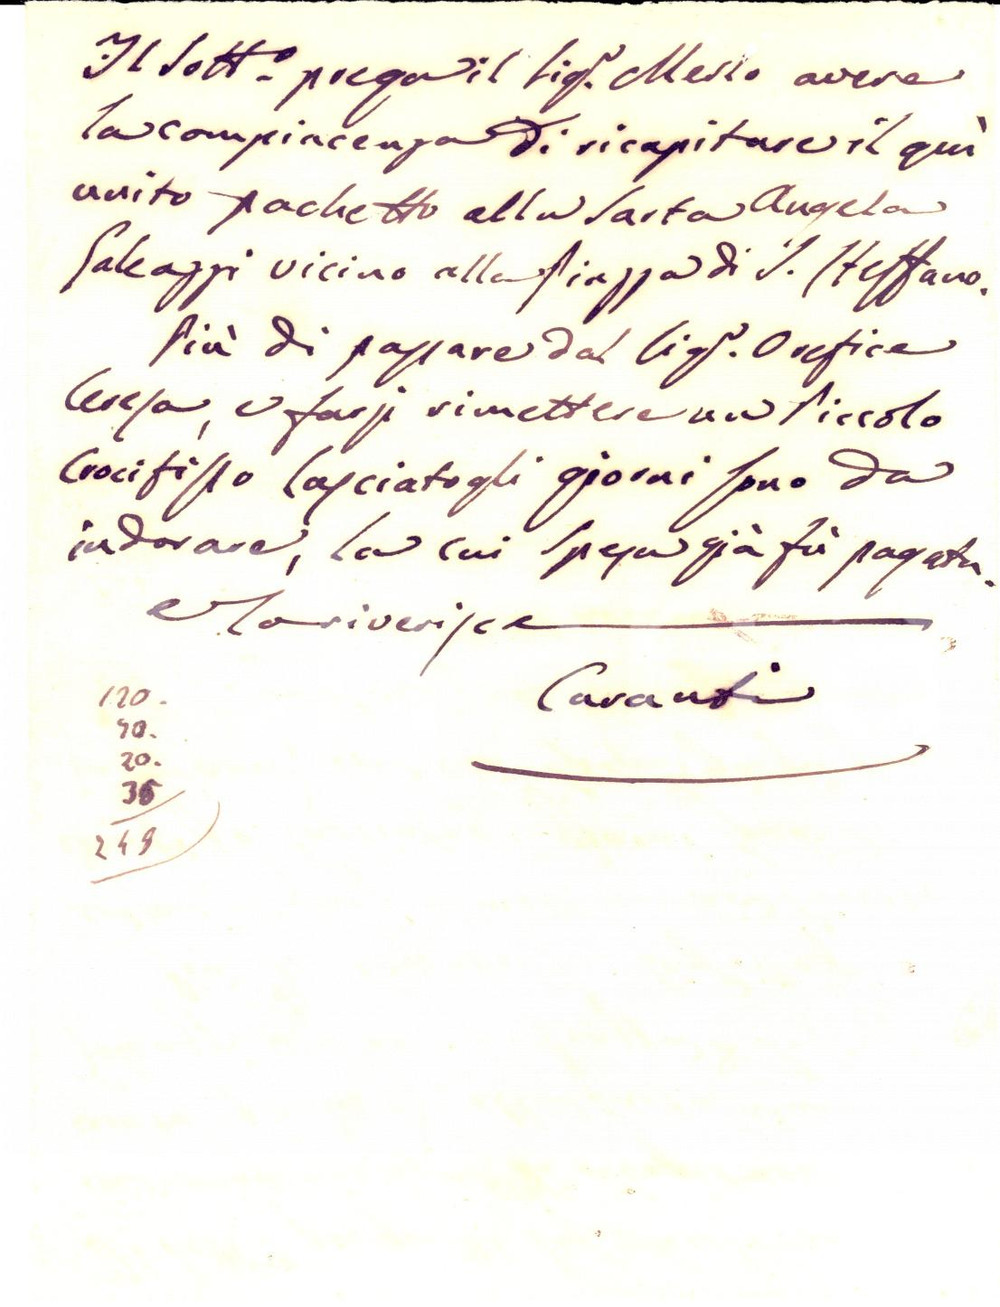 Il Sott.º prega il Sigʳ. Merlo avere
la compiacenza di ricapitare il quì
unito pachetto alla Sarta Angela
Galeazzi vicino alla Piazza di S. Steffano.
Più di passare dal Sigʳ. Orefice
Ceresa, e farsi rimettere un Piccolo
Crocifisso lasciatogli giorni sono da
indorare, la cui spesa già fù pagata.
e la riverisce
Caranti
120.
20.